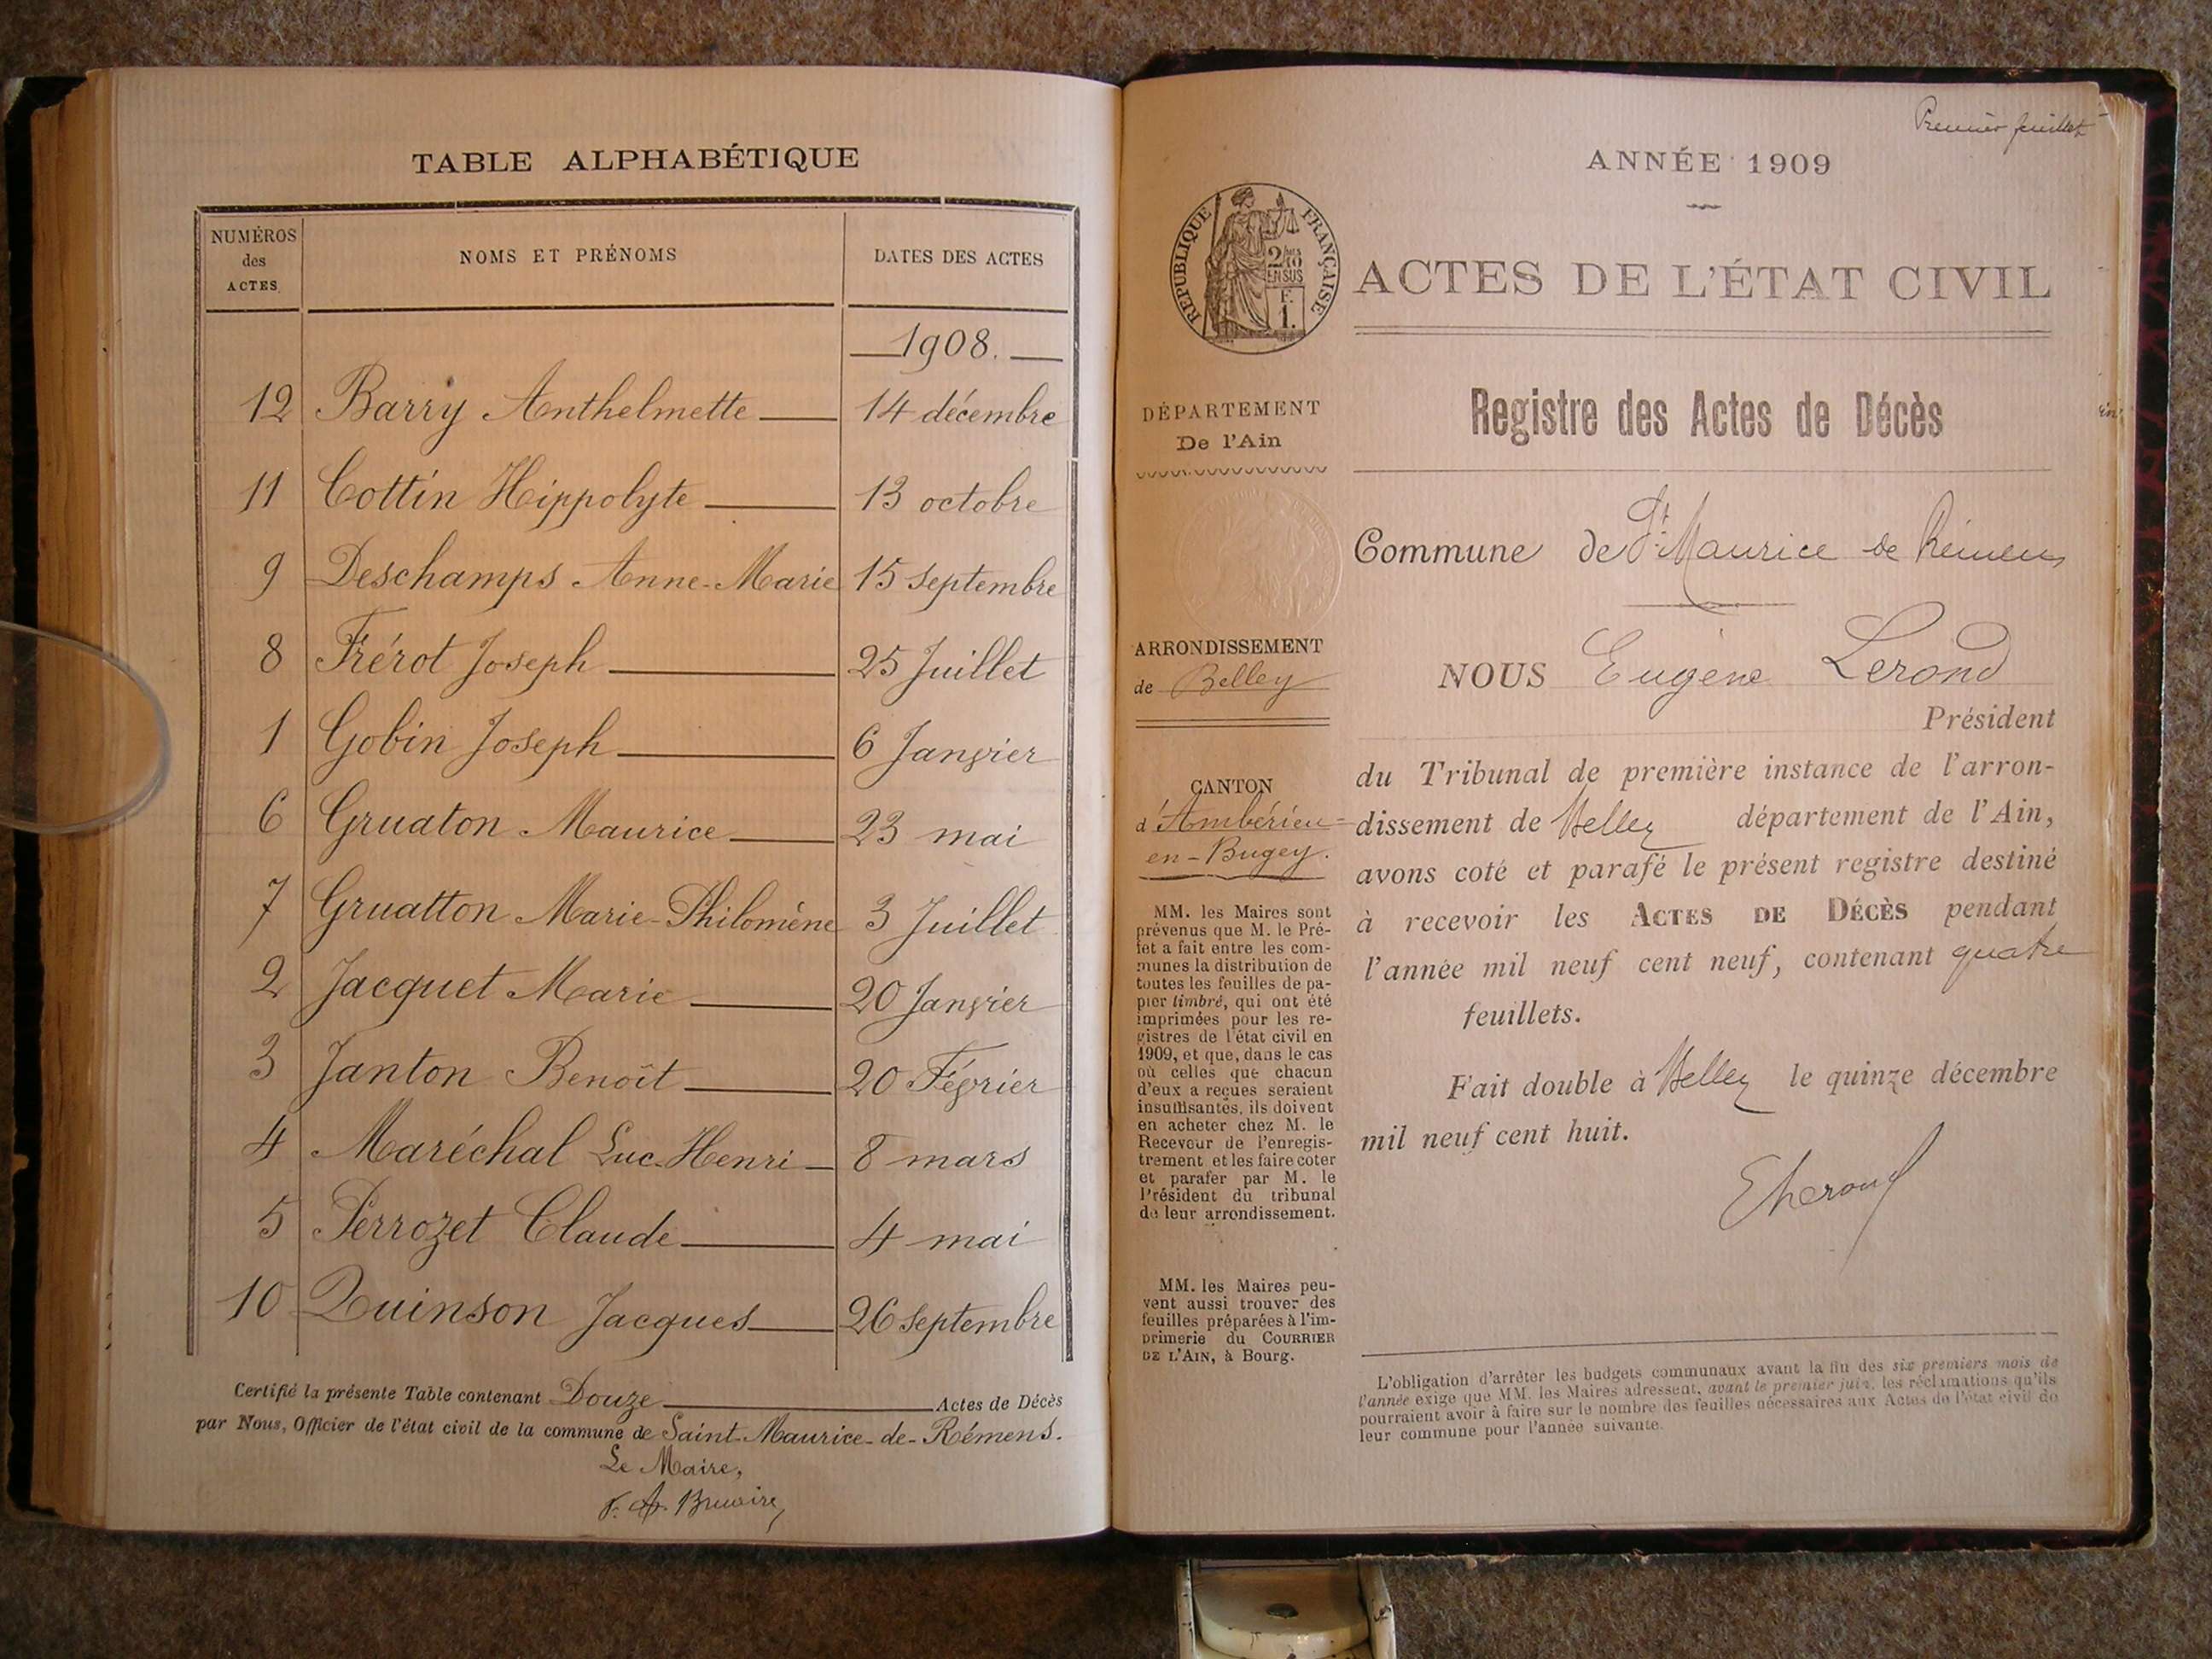 TABLE ALPHABÉTIQUE
NUMÉROS
des
ACTES
NOMS ET PRÉNOMS
DATES DES ACTES
1908.
12 Barry Anthelmette 14 décembre
11 Cottin Hippolyte 13 octobre
9 Deschamps Anne-Marie 15 septembre
8 Frérot Joseph 25 Juillet
1 Gobin Joseph 6 Janvier
6 Gruaton Maurice 23 mai
7 Gruatton Marie-Philomène 3 Juillet
2 Jacquet Marie 20 Janvier
3 Janton Benoît 20 Février
4 Maréchal Luc-Henri 8 mars
5 Perrozet Claude 4 mai
10 Quinson Jacques 26 septembre
Certifié la présente Table contenant Douze Actes de Décès
par Nous, Officier de l'état civil de la commune de Saint-Maurice-de-Rémens.
Le Maire,
Premier feuillet
ANNÉE 1909
RÉPUBLIQUE FRANÇAISE
2/10
EN SUS
F.
1.
ACTES DE L'ÉTAT CIVIL
Registre des Actes de Décès
DÉPARTEMENT
De l'Ain
ARRONDISSEMENT
de Belley
CANTON
d'Ambérieu-
en-Bugey.
MM. les Maires sont
prévenus que M. le Pré-
fet a fait entre les com-
munes la distribution de
toutes les feuilles de pa-
pier timbré, qui ont été
imprimées pour les re-
gistres de l'état civil en
1909, et que, dans le cas
où celles que chacun
d'eux a reçues seraient
insuffisantes, ils doivent
en acheter chez M. le
Receveur de l'enregis-
trement et les faire coter
et parafer par M. le
Président du tribunal
de leur arrondissement.
MM. les Maires peu-
vent aussi trouver des
feuilles préparées à l'im-
primerie du COURRIER
DE L'AIN, à Bourg.
Commune de St Maurice de Rémens
NOUS Eugène Lerond
Président
du Tribunal de première instance de l'arron-
dissement de Belley département de l'Ain,
avons coté et parafé le présent registre destiné
à recevoir les ACTES DE DÉCÈS pendant
l'année mil neuf cent neuf, contenant quatre
feuillets.
Fait double à Belley le quinze décembre
mil neuf cent huit.
L'obligation d'arrêter les budgets communaux avant la fin des six premiers mois de
l'année exige que MM. les Maires adressent, avant le premier juin, les réclamations qu'ils
pourraient avoir à faire sur le nombre des feuilles nécessaires aux Actes de l'état civil de
leur commune pour l'année suivante.